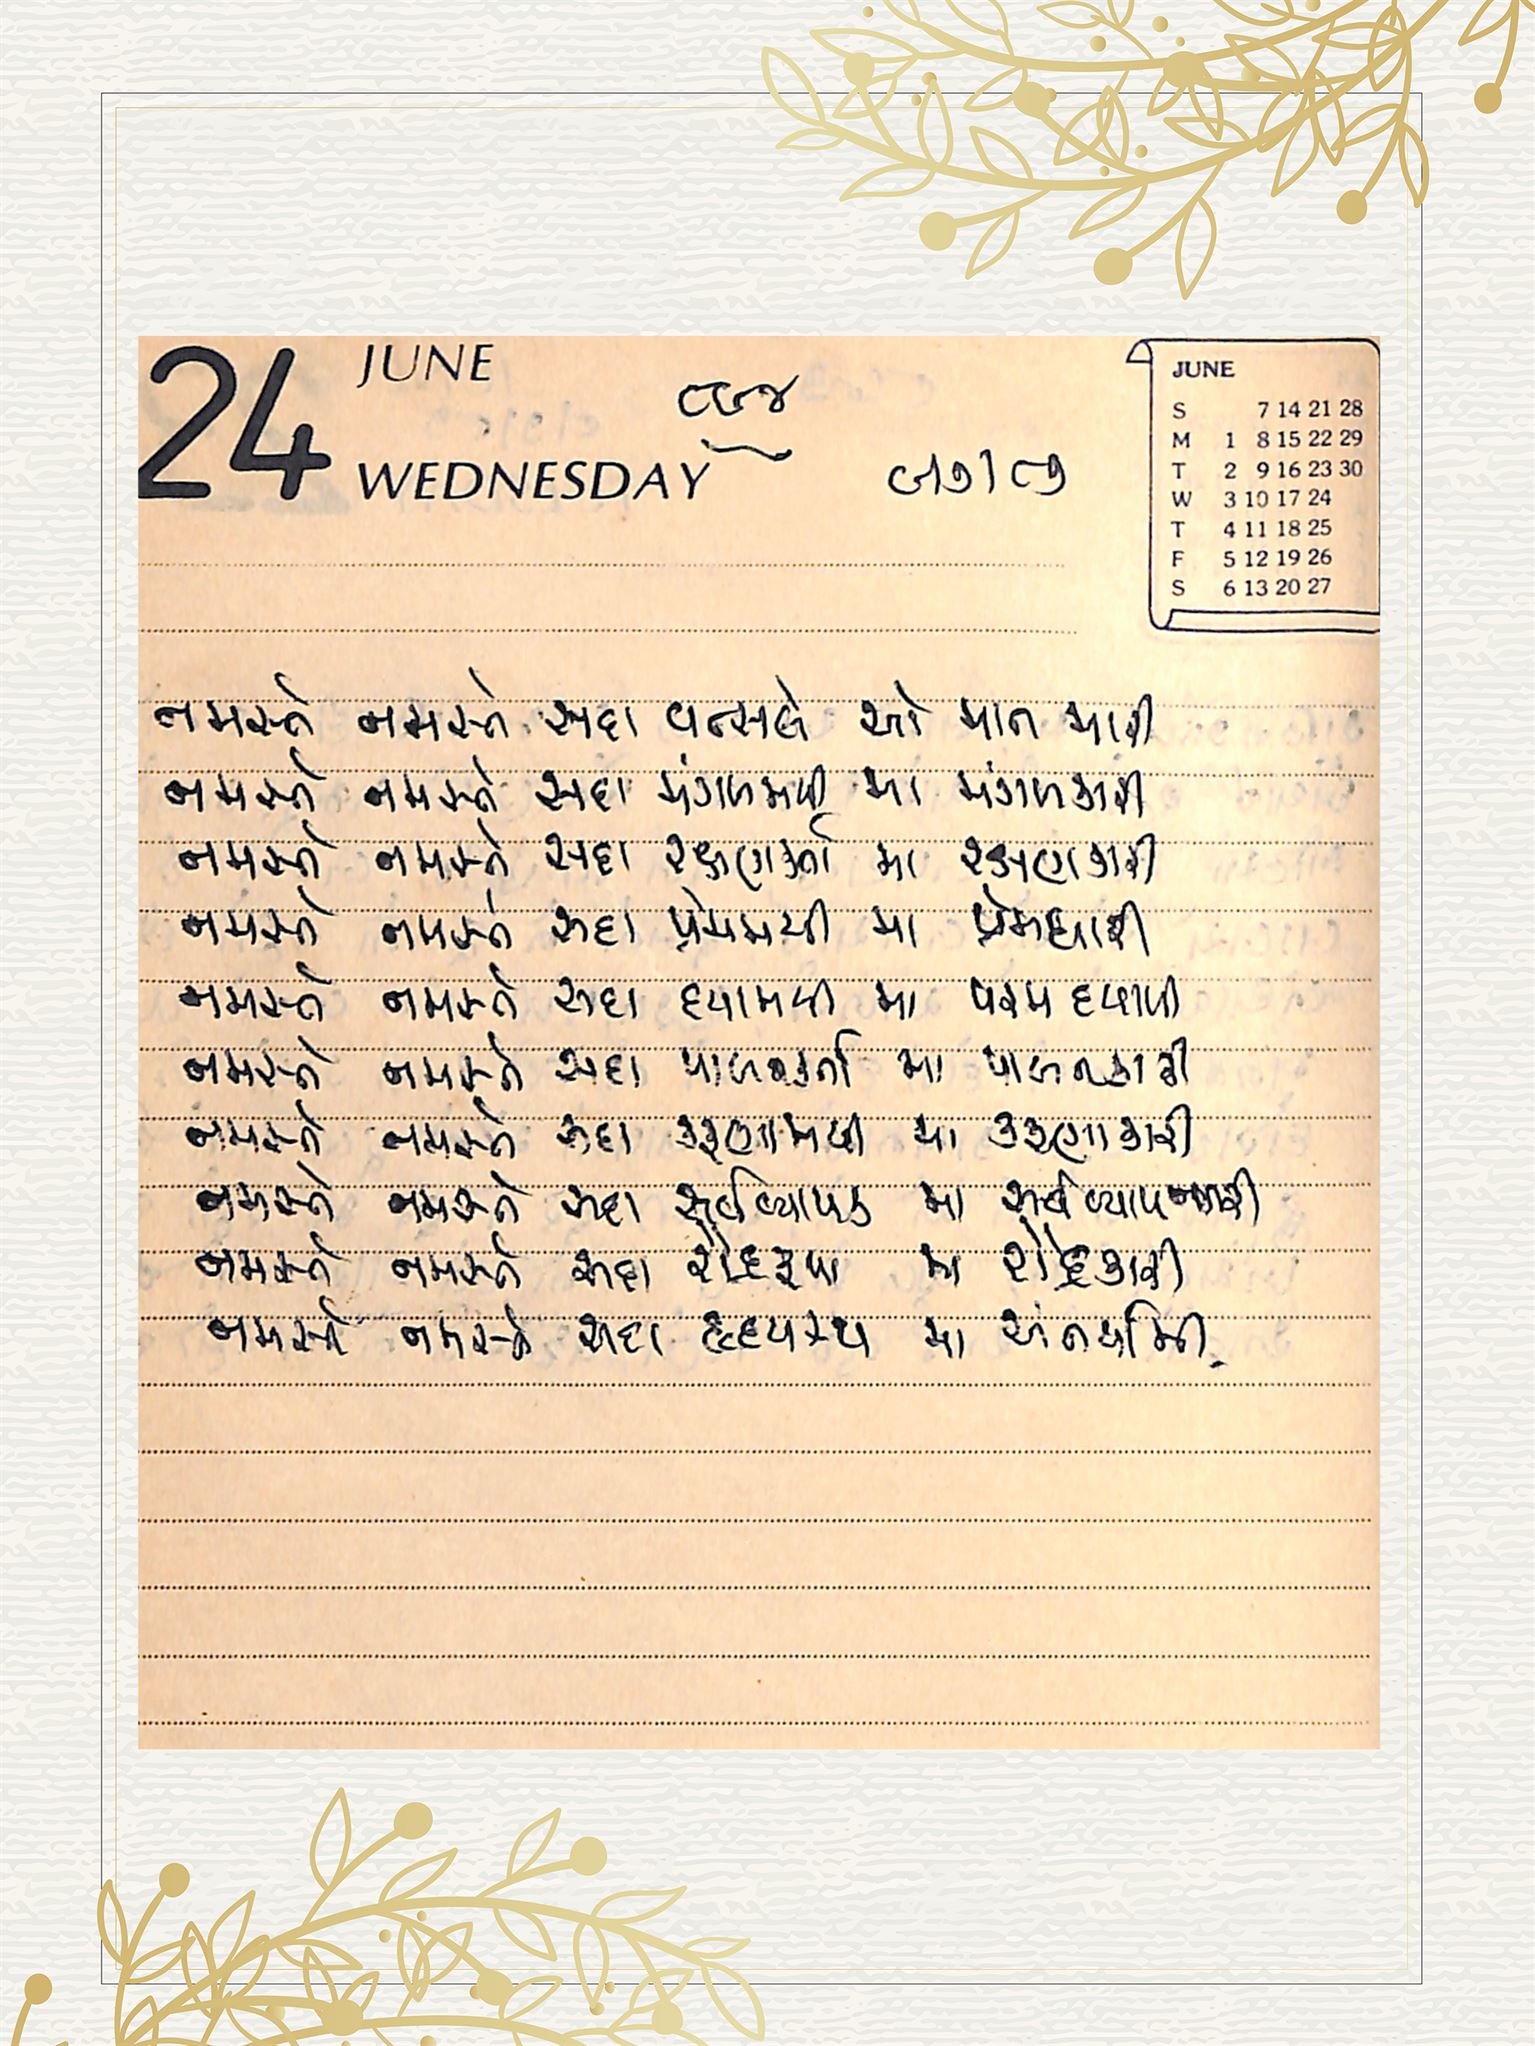 24 JUNE
WEDNESDAY
JUNE
S 7 14 21 28
M 1 8 15 22 29
T 2 9 16 23 30
W 3 10 17 24
T 4 11 18 25
F 5 12 19 26
S 6 13 20 27
નમસ્તે નમસ્તે સદા વત્સલે ઓ માત મારી
નમસ્તે નમસ્તે સદા મંગળમયી મા મંગળકારી
નમસ્તે નમસ્તે સદા રક્ષણકર્તા મા રક્ષણકારી
નમસ્તે નમસ્તે સદા પ્રેમમયી મા પ્રેમધારી
નમસ્તે નમસ્તે સદા દયામયી મા પરમ દયાળી
નમસ્તે નમસ્તે સદા પાળનકર્તા મા પાળનકારી
નમસ્તે નમસ્તે સદા કરૂણામયી મા કરૂણાકારી
નમસ્તે નમસ્તે સદા સર્વવ્યાપક મા
નમસ્તે નમસ્તે સદા રૌદ્રરૂપા મા રૌદ્રકારી
નમસ્તે નમસ્તે સદા હૃદયસ્થ મા અંતર્યામિની.